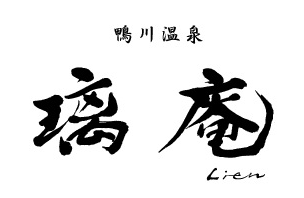 鴨川温泉
璃庵
Lien